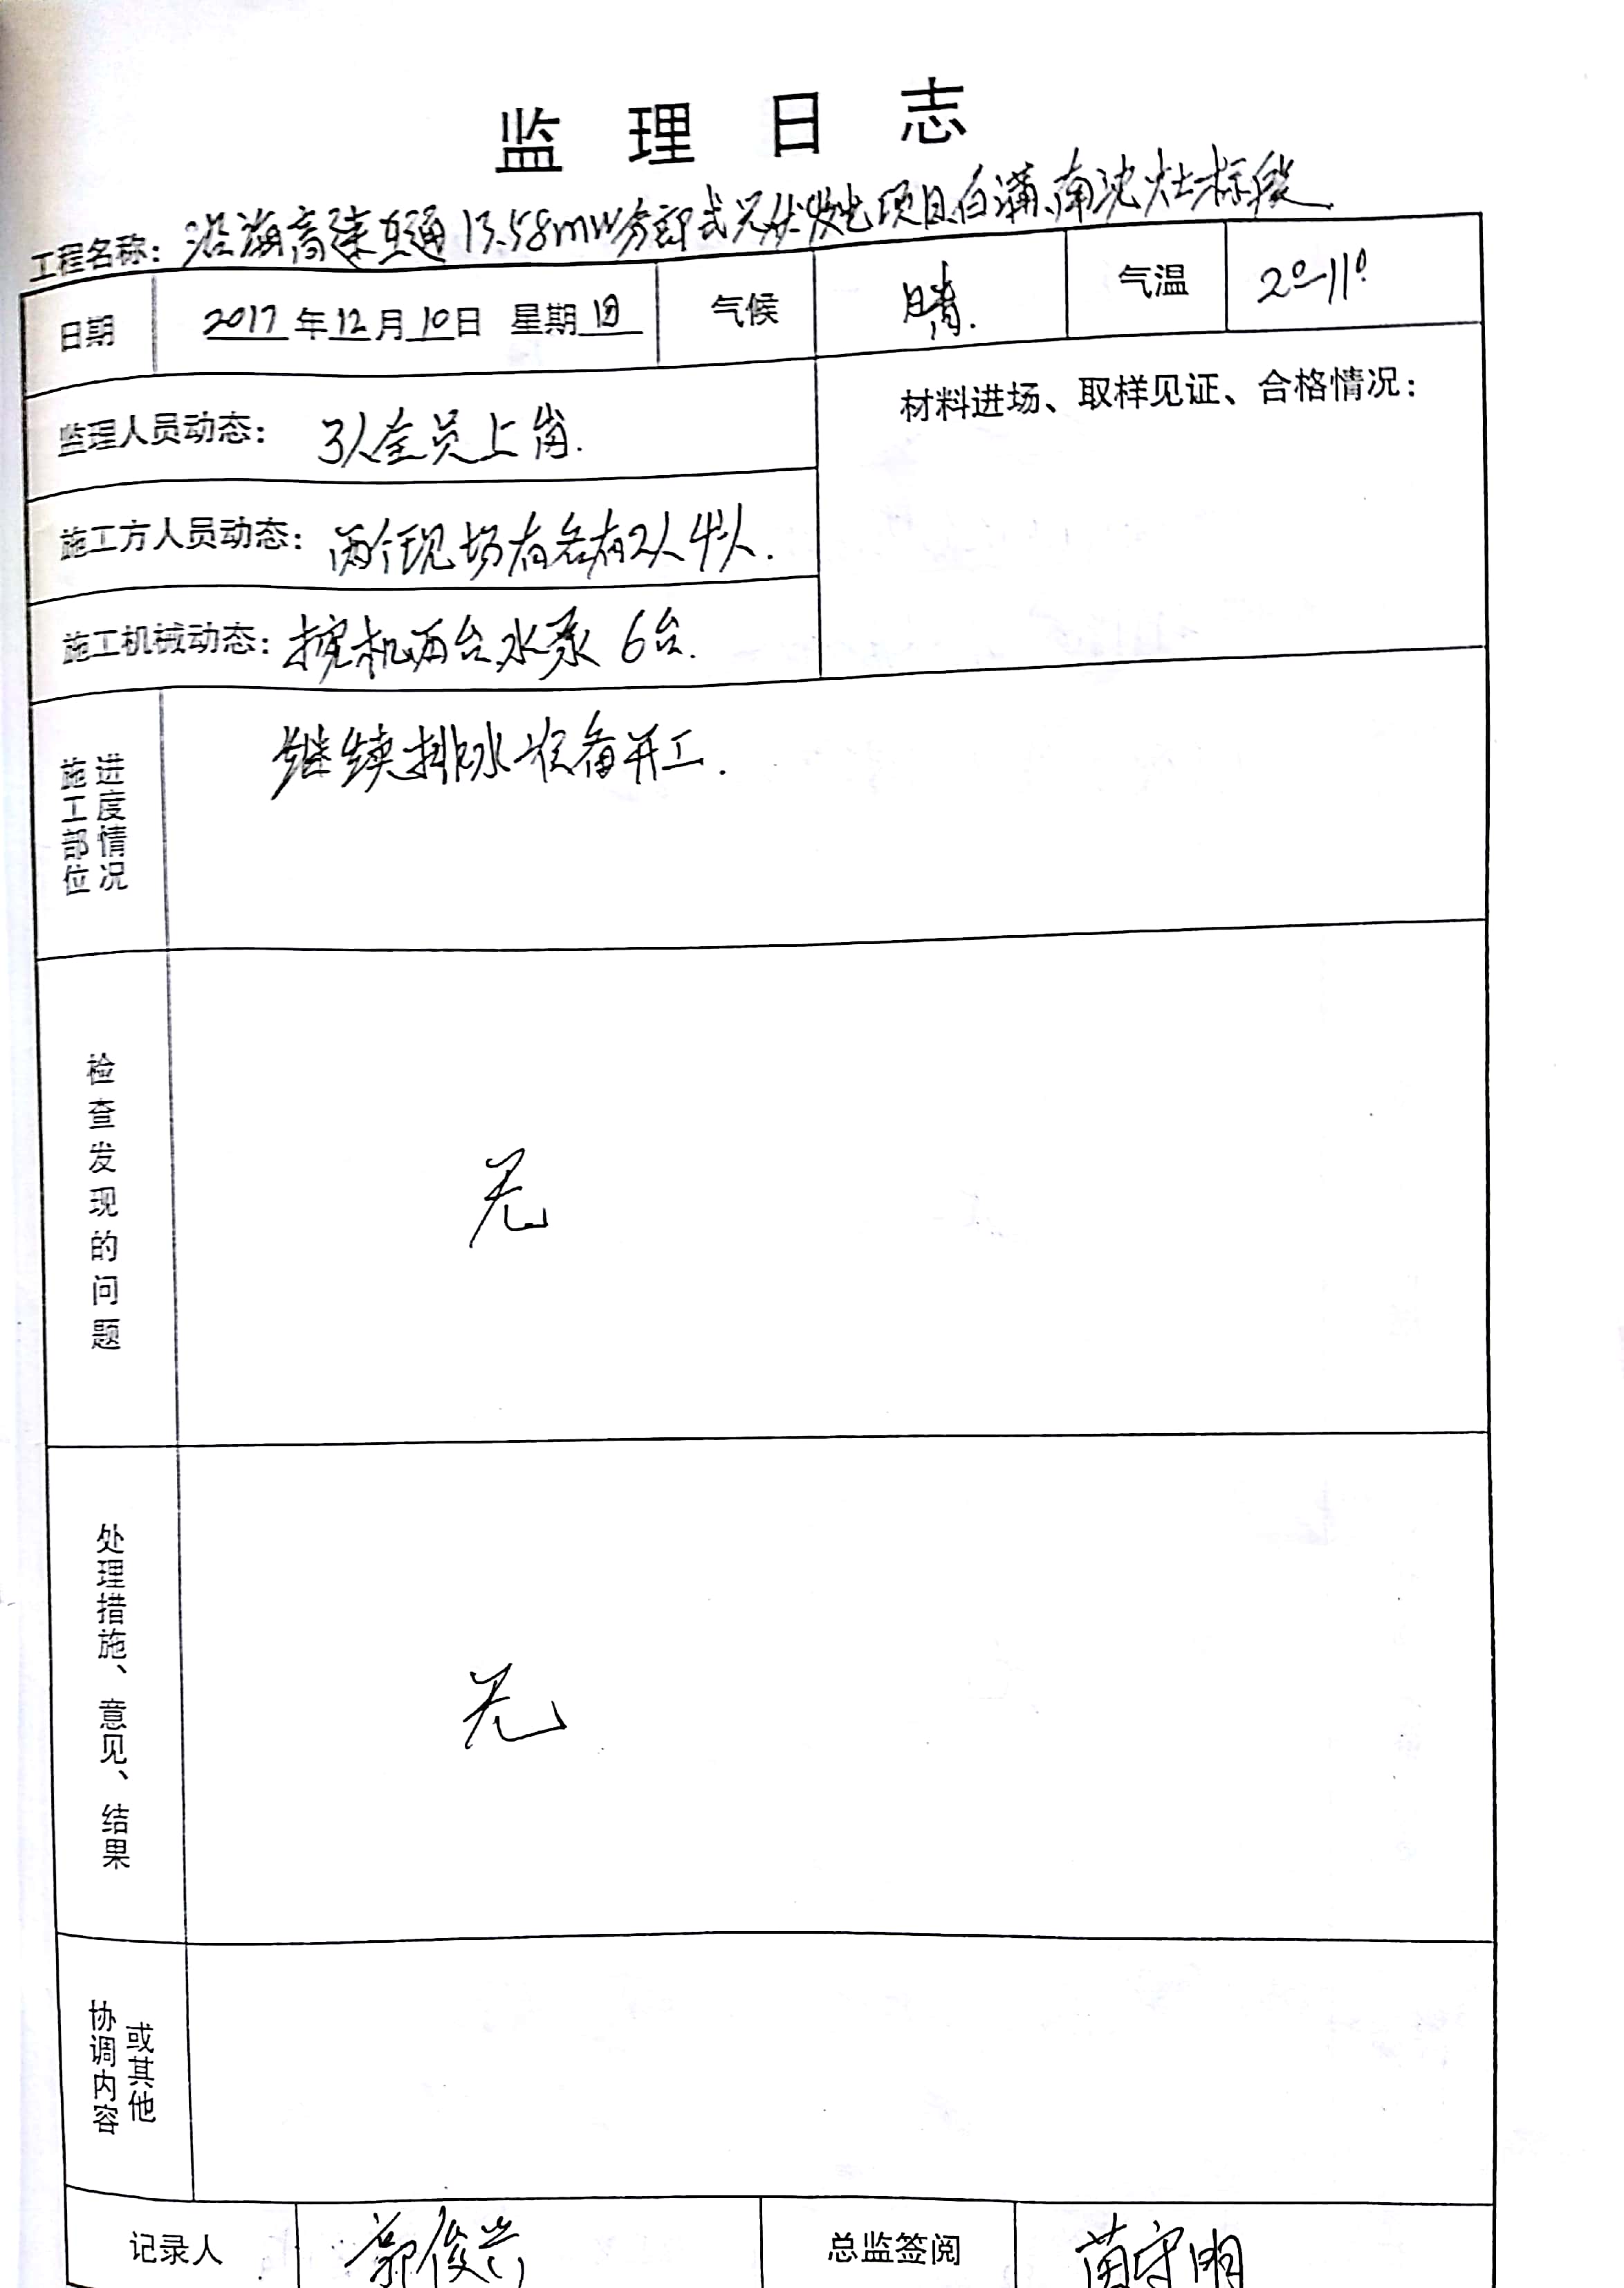 监理日志
工程名称：沿海高速大通13.58mw分部式光伏发电项目白蒲、南沈灶标段
日期 2017年12月10日 星期日 气候 晴. 气温 2°-11°
监理人员动态：3人全员上岗.
材料进场、取样见证、合格情况：
施工方人员动态：两个现场有各有2人 4人.
施工机械动态：挖机两台，水泵 6台.
施工部位 进度情况
继续排水准备开工.
检查发现的问题
无
处理措施、意见、结果
无
协调内容 或其他
记录人 郭俊兴 总监签阅 守明